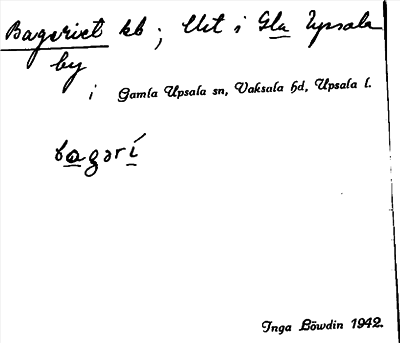 Bageriet kb ; llt i Gla Upsala
by
i Gamla Upsala sn, Vaksala hd, Upsala l.
bagərí
Inga Löwdin 1942.